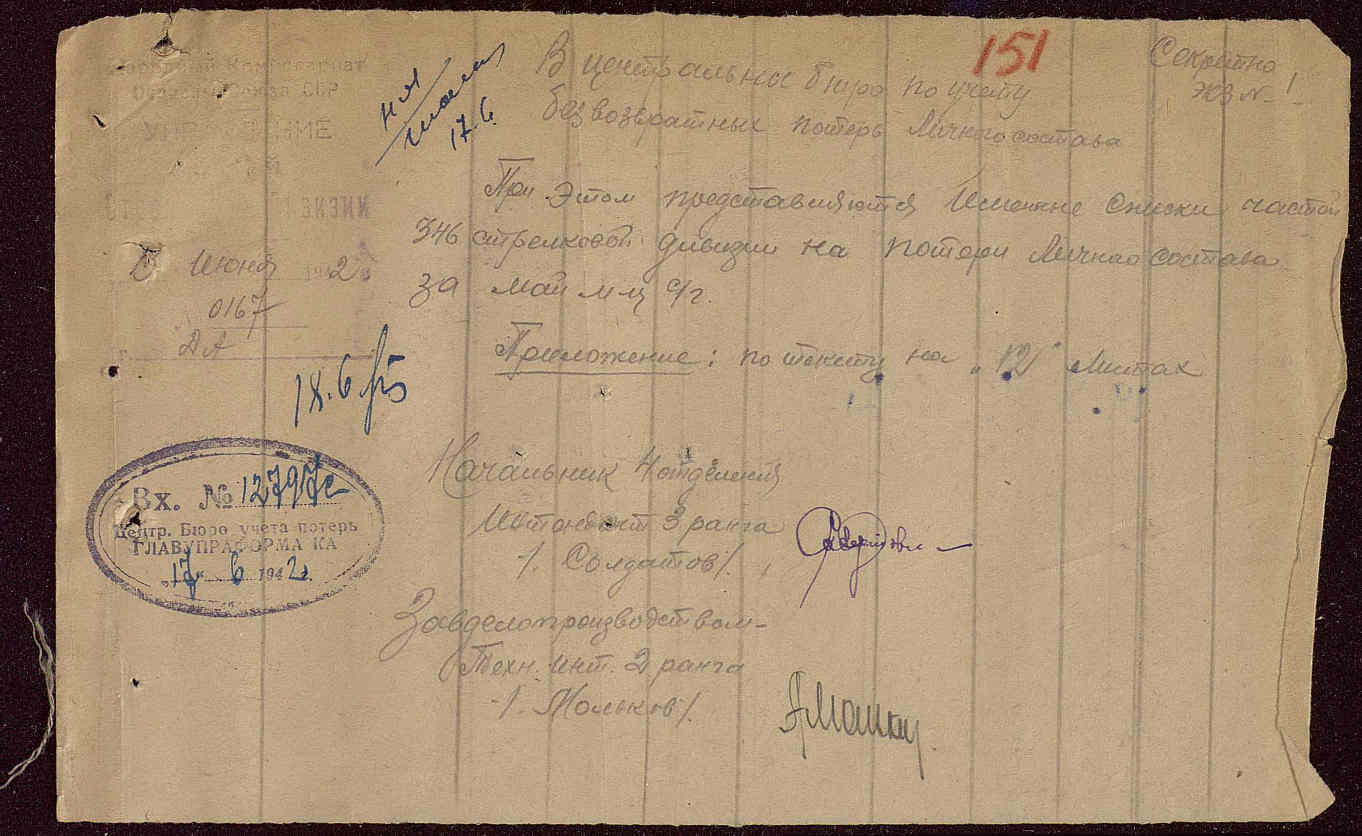 151
Секретно
Экз № 1
В центральны бюро по учету
безвозвратных потерь Личного состава
17.6.
Народный Комиссариат
Обороны Союза ССР
УПРАВЛЕНИЕ
При Этом представляются Именные списки частей
346 стрелковой дивизии на потери Личнаго состава
за май м-ц с/г.
Июня 1942
0167
Приложение: по тексту на "12" Листах
18.6
Начальник 4 отделения
Интендант 3 ранга
/. Солдатов/.
Вх. № 12797с
Центр. Бюро учета потерь
ГЛАВУПРАФОРМА КА
"17" 6 1942.
Завделопроизводством-
Техн. инт. 2 ранга
/. Мольков/.